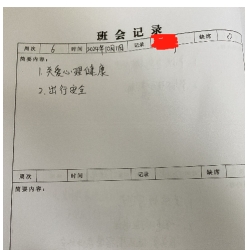 班会记录
周次 6 时间 2024年10月11日 记录 缺席 0
简要内容:
1.关爱心理健康
2.出行安全
周次 时间 记录 缺席
简要内容: